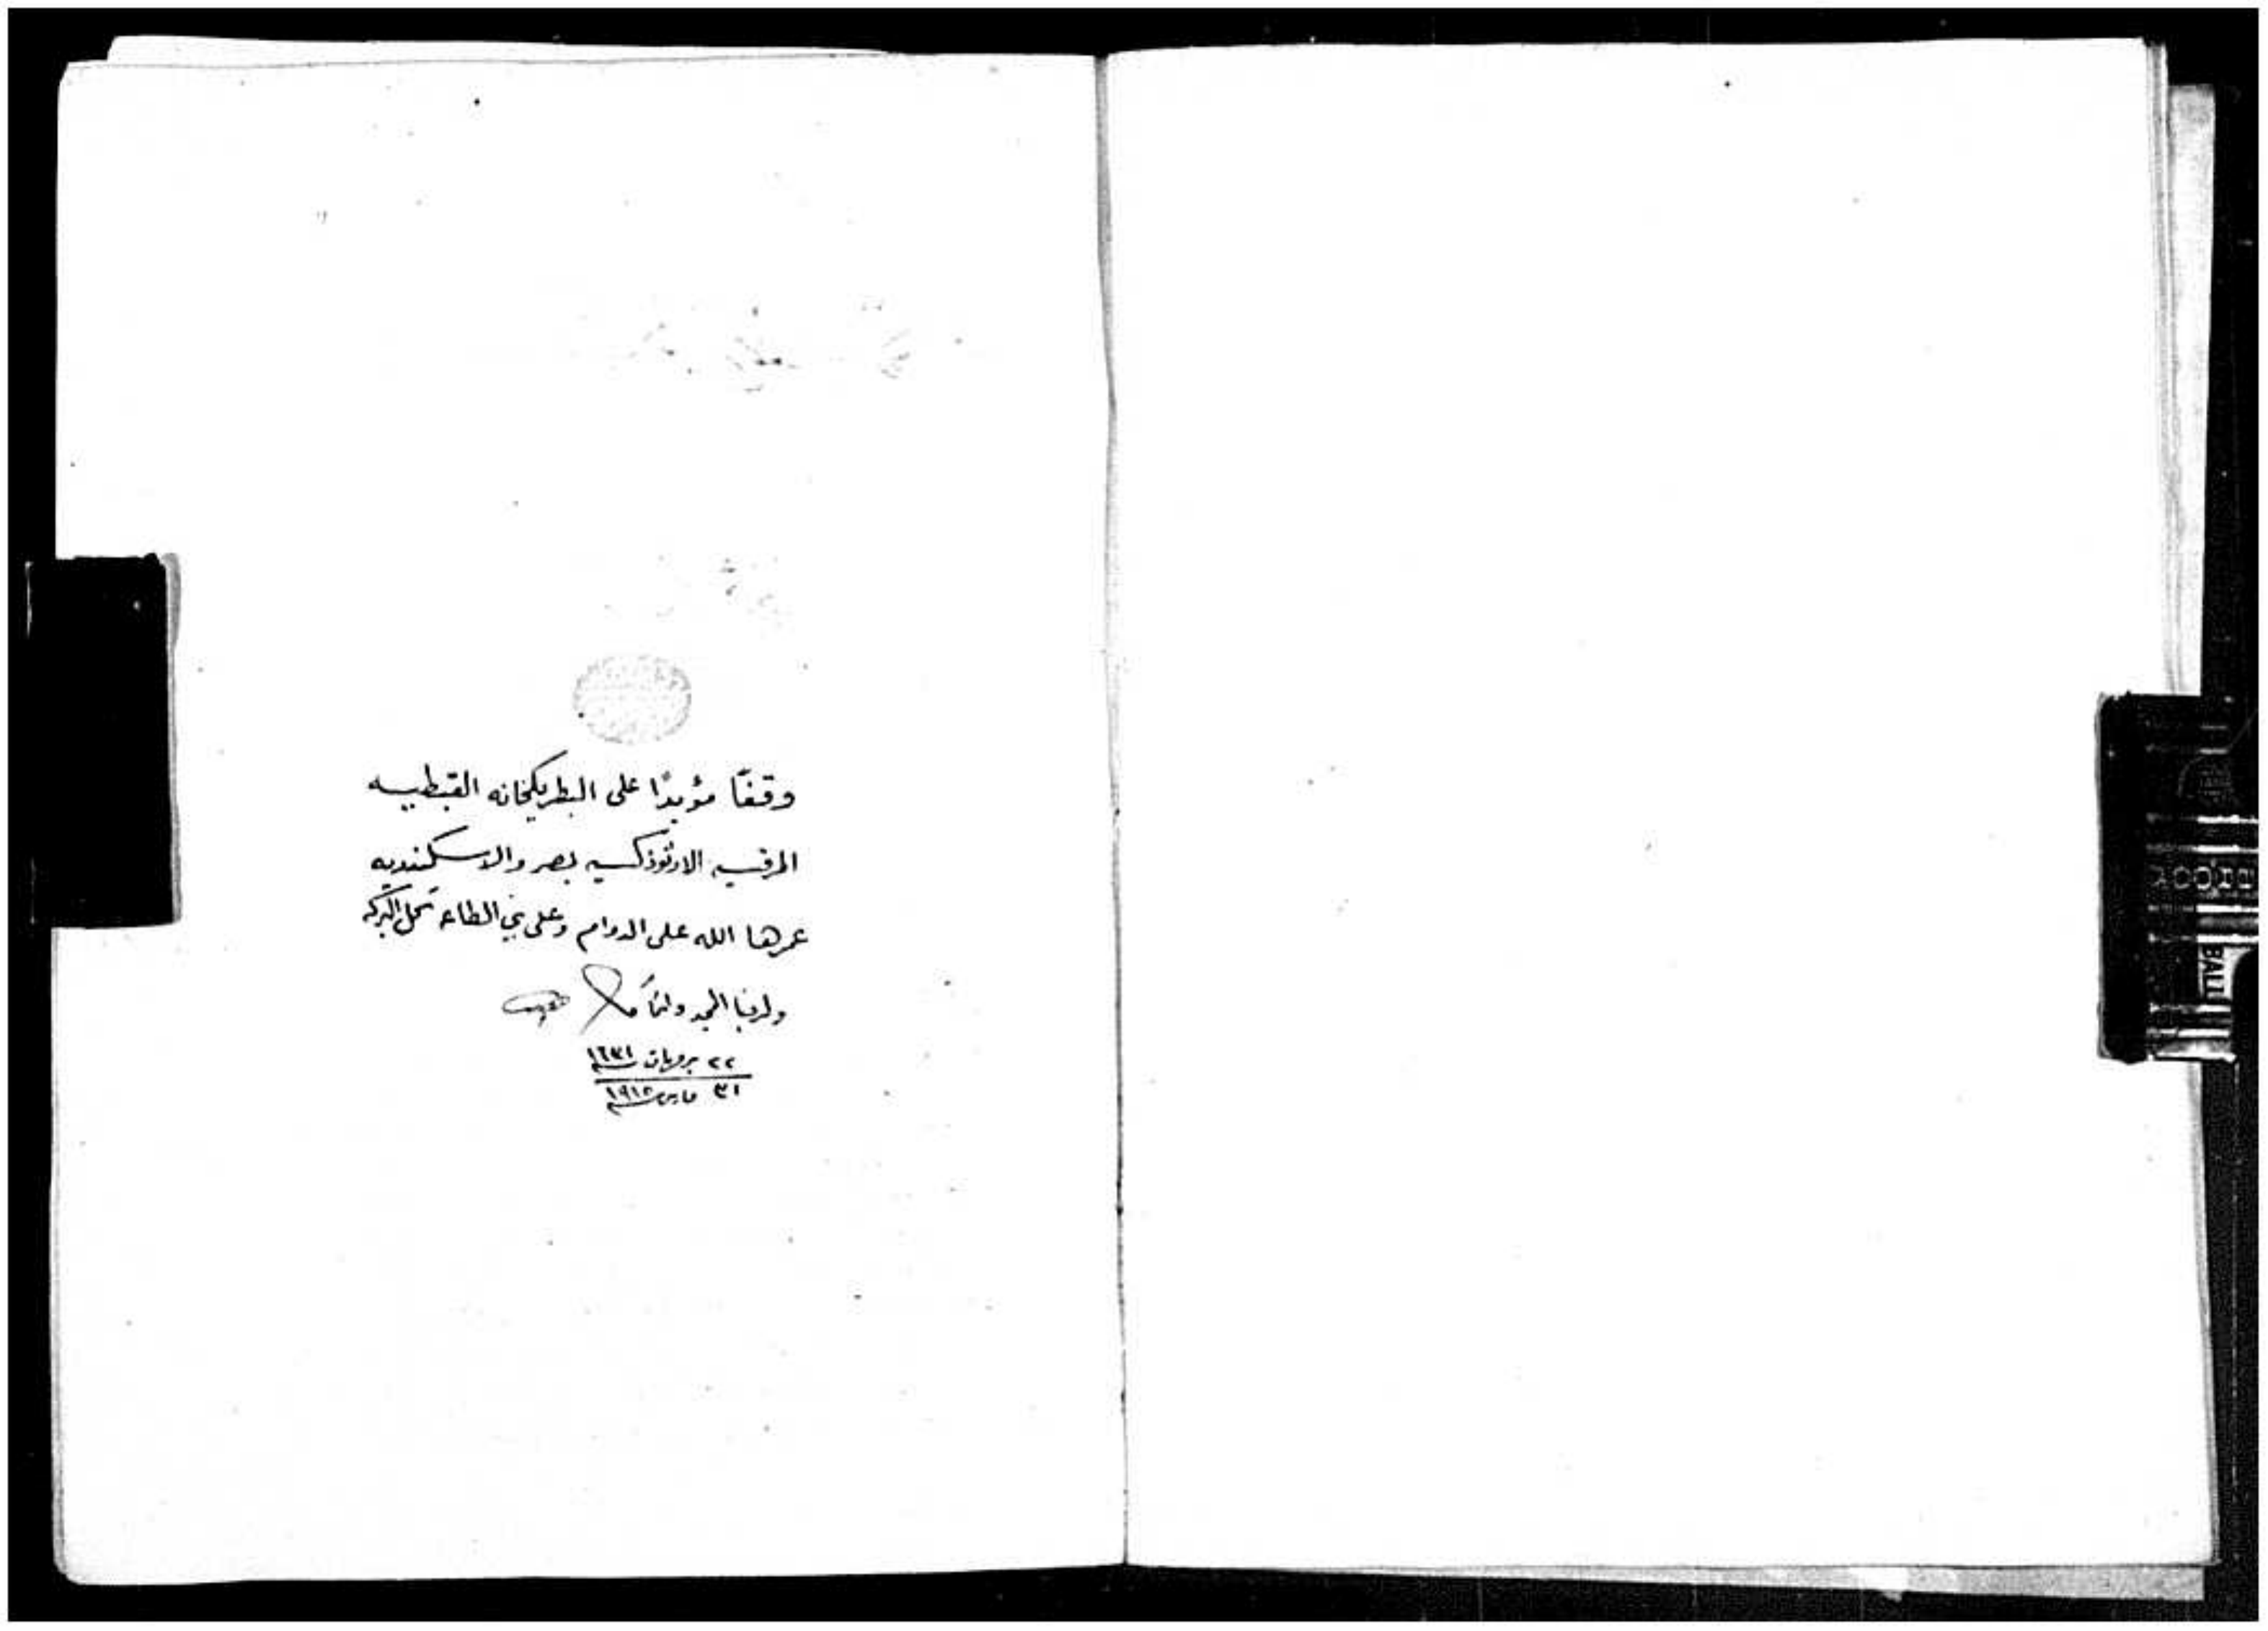 وقفًا مؤبدًا على البطريكخانه القبطيه
المرقسيه الارثوذكسيه بمصر والاسكندريه
عمرها الله على الدوام وعلى بني الطاعه تحل البركه
ولربنا المجد دائماً
٢٢ برمهات سنة ١٦٣١
٣١ مارس سنة ١٩١٥